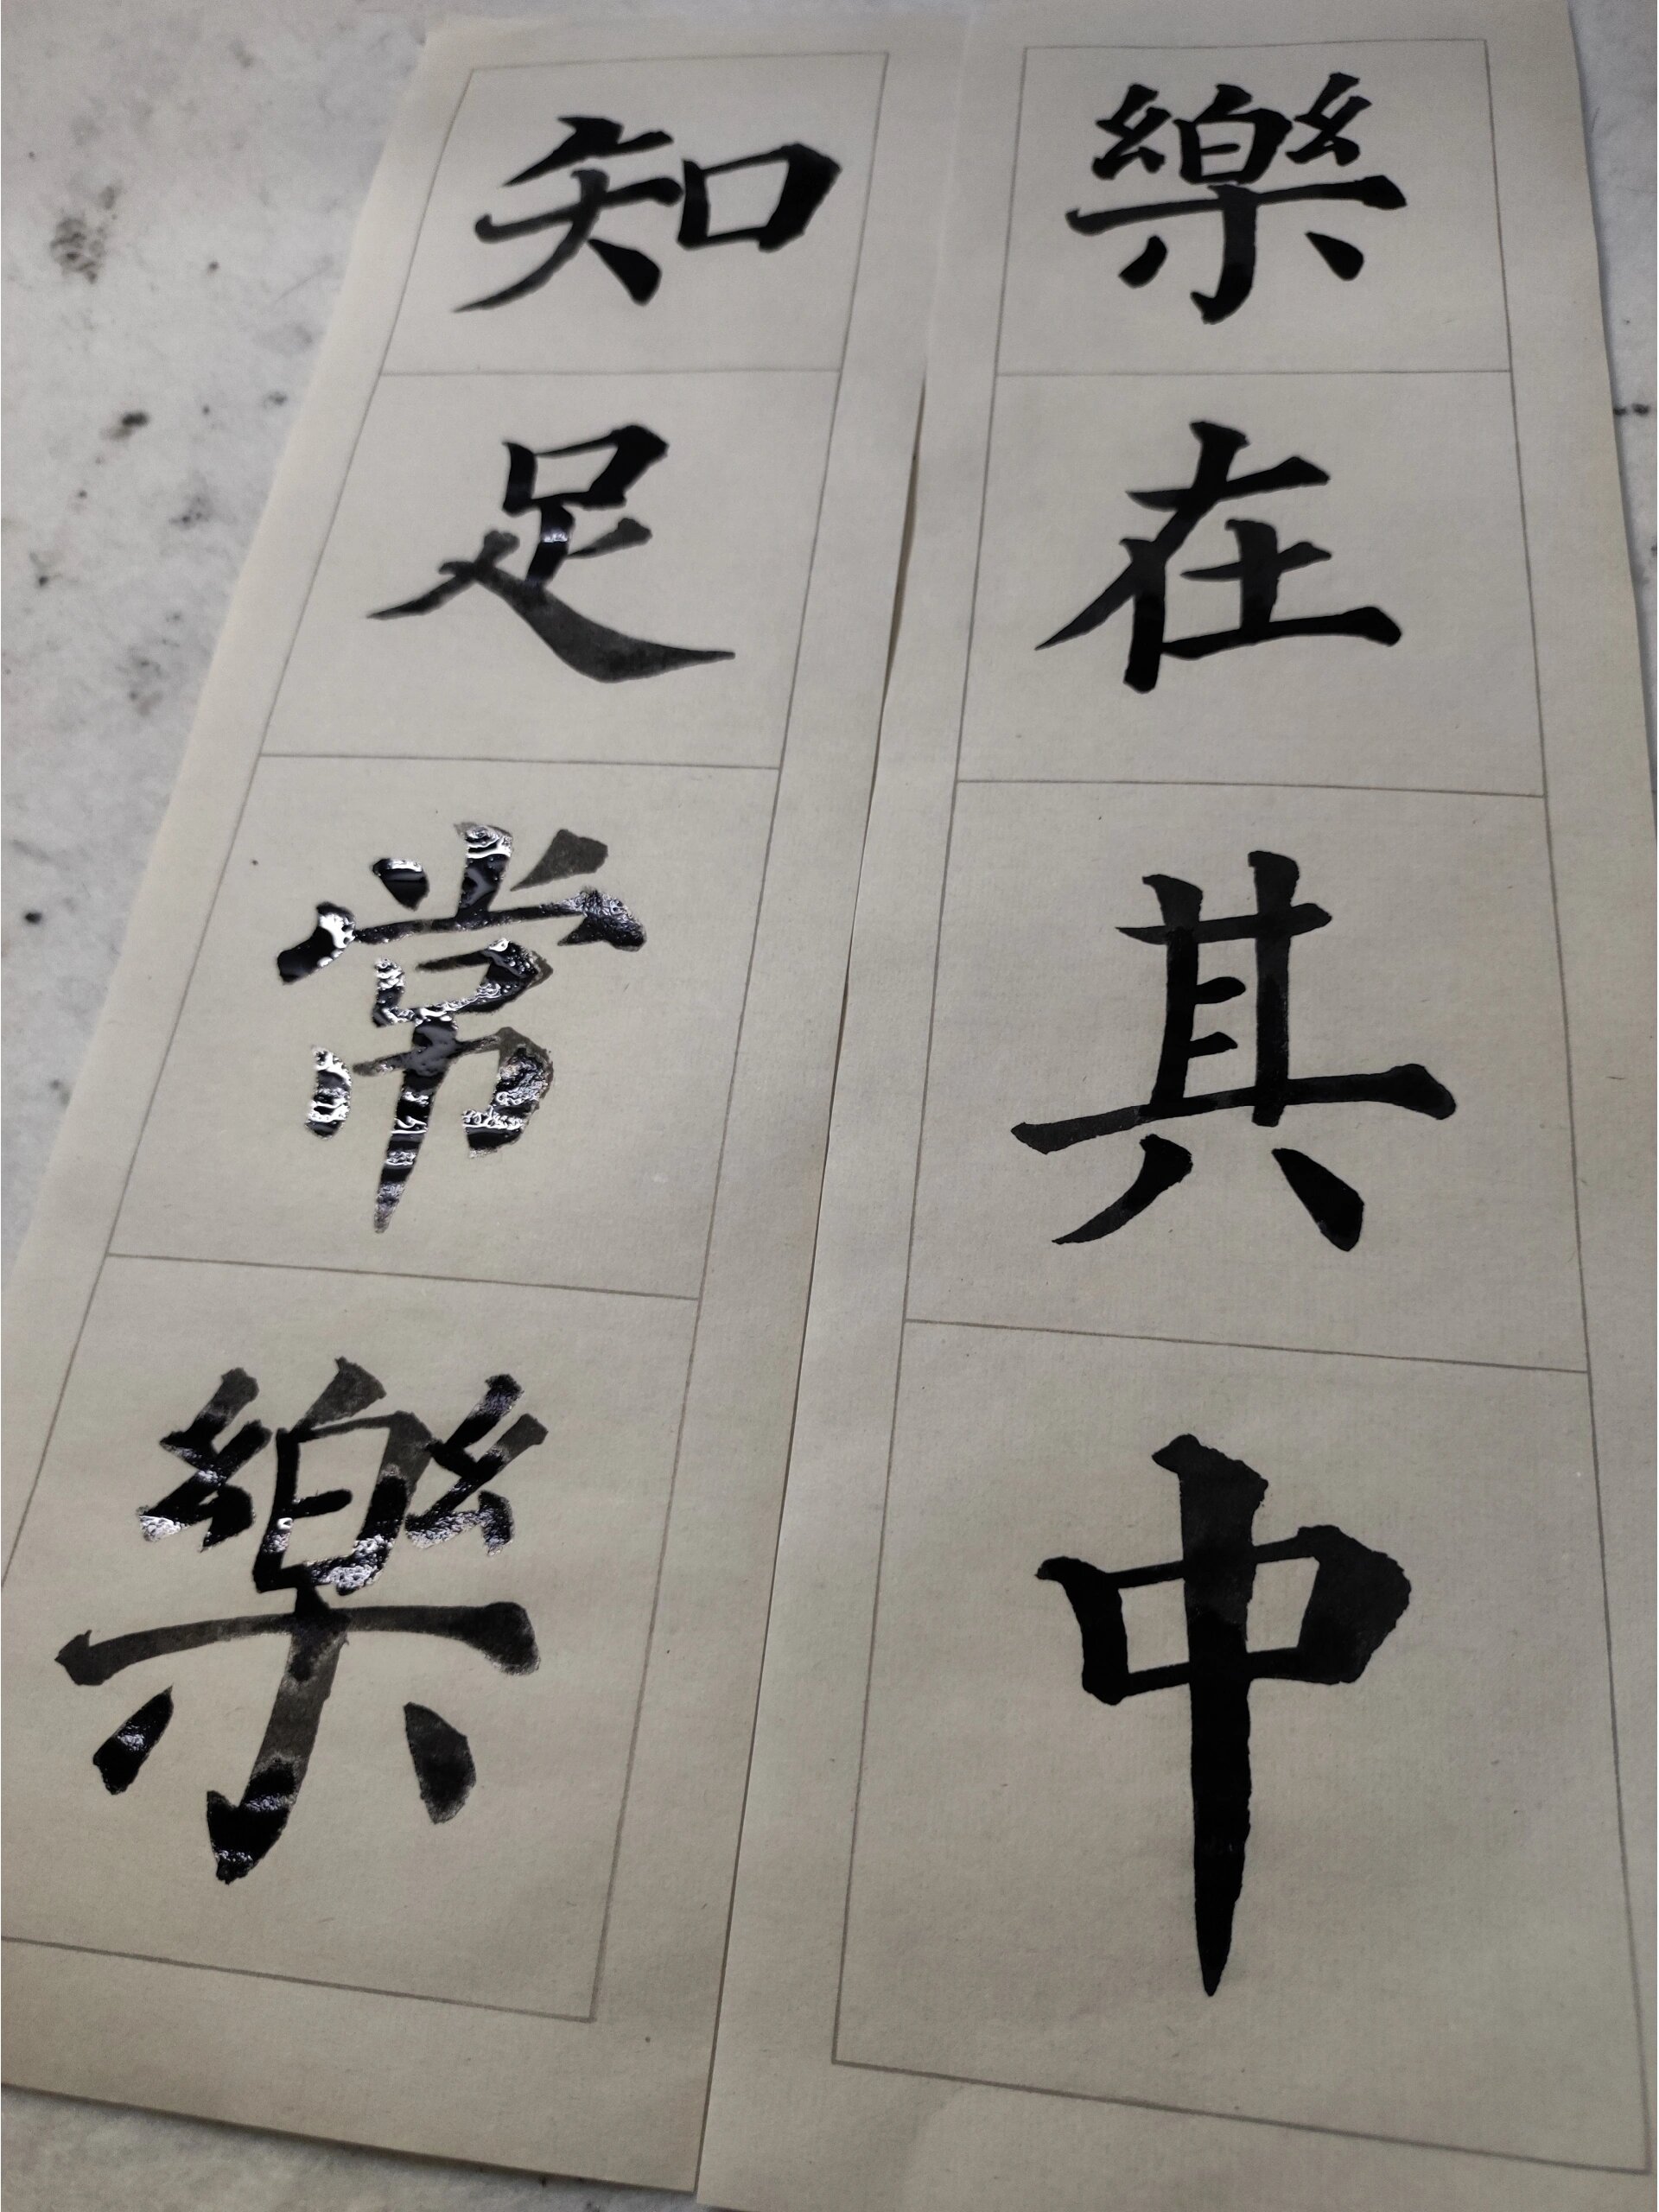 樂在其中
知足常樂